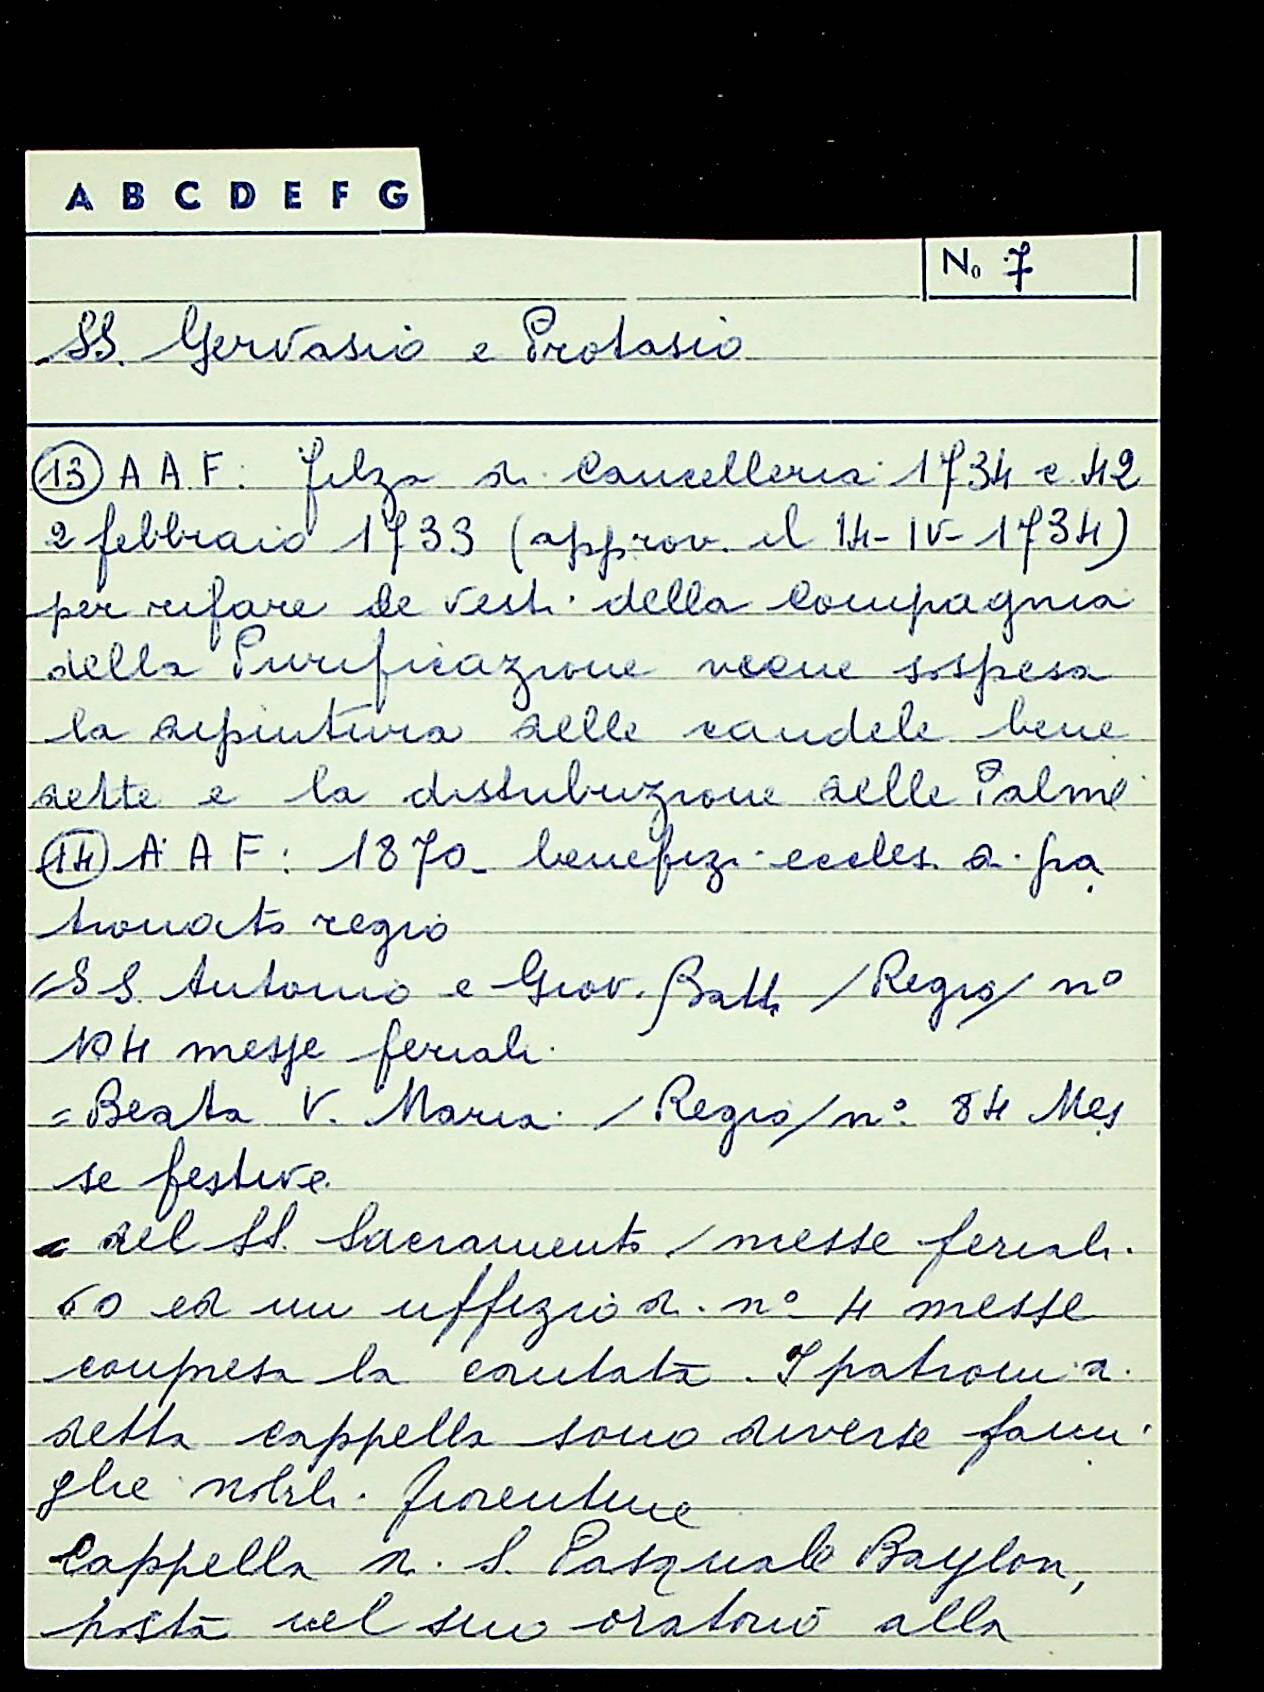 A B C D E F G
No 7
SS. Gervasio e Protasio
(13) A A F: Filza di Cancelleria 1734 e 42
2 febbraio 1733 (approv. il 14-IV-1734)
per rifare le vesti della Compagnia
della Purificazione viene sospesa
la dipintura delle candele bene
dette e la distribuzione delle Palme
(14) A A F: 1870 - benefizi eccles. di pa
tronato regio
= SS. Antonio e Giov. Batt. /Regio/ n°
104 messe feriali
= Beata V. Maria /Regio/ n° 84 Mes
se festive.
= del SS. Sacramento / messe feriali
60 ed un uffizio di n° 4 messe
compresa la cantata. I patroni di
detta cappella sono diverse fami
glie nobili fiorentine
Cappella di S. Pasquale Baylon,
posta nel suo oratorio alla